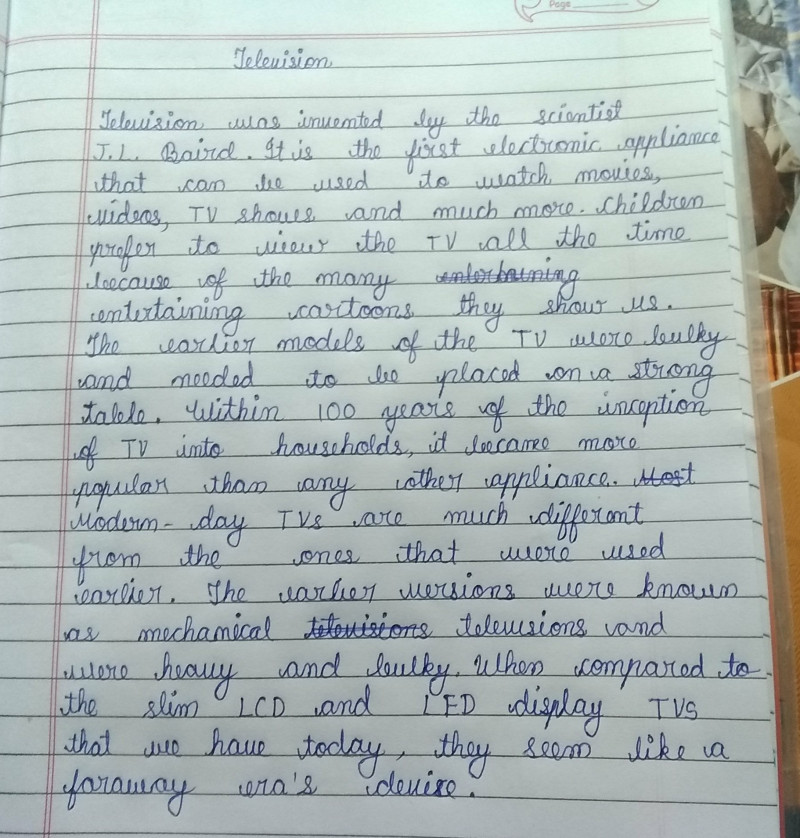 Page
Television
Television was invented by the scientist
J.L. Baird. It is the first electronic appliance
that can be used to watch movies,
videos, TV shows and much more. Children
prefer to view the TV all the time
because of the many entertaining
entertaining cartoons they show us.
The earlier models of the TV were bulky
and needed to be placed on a strong
table. Within 100 years of the inception
of TV into households, it became more
popular than any other appliance. Most
Modern-day TVs are much different
from the ones that were used
earlier. The earlier versions were known
as mechanical televisions televisions and
were heavy and bulky. When compared to
the slim LCD and LED display TVs
that we have today, they seem like a
faraway era's device.